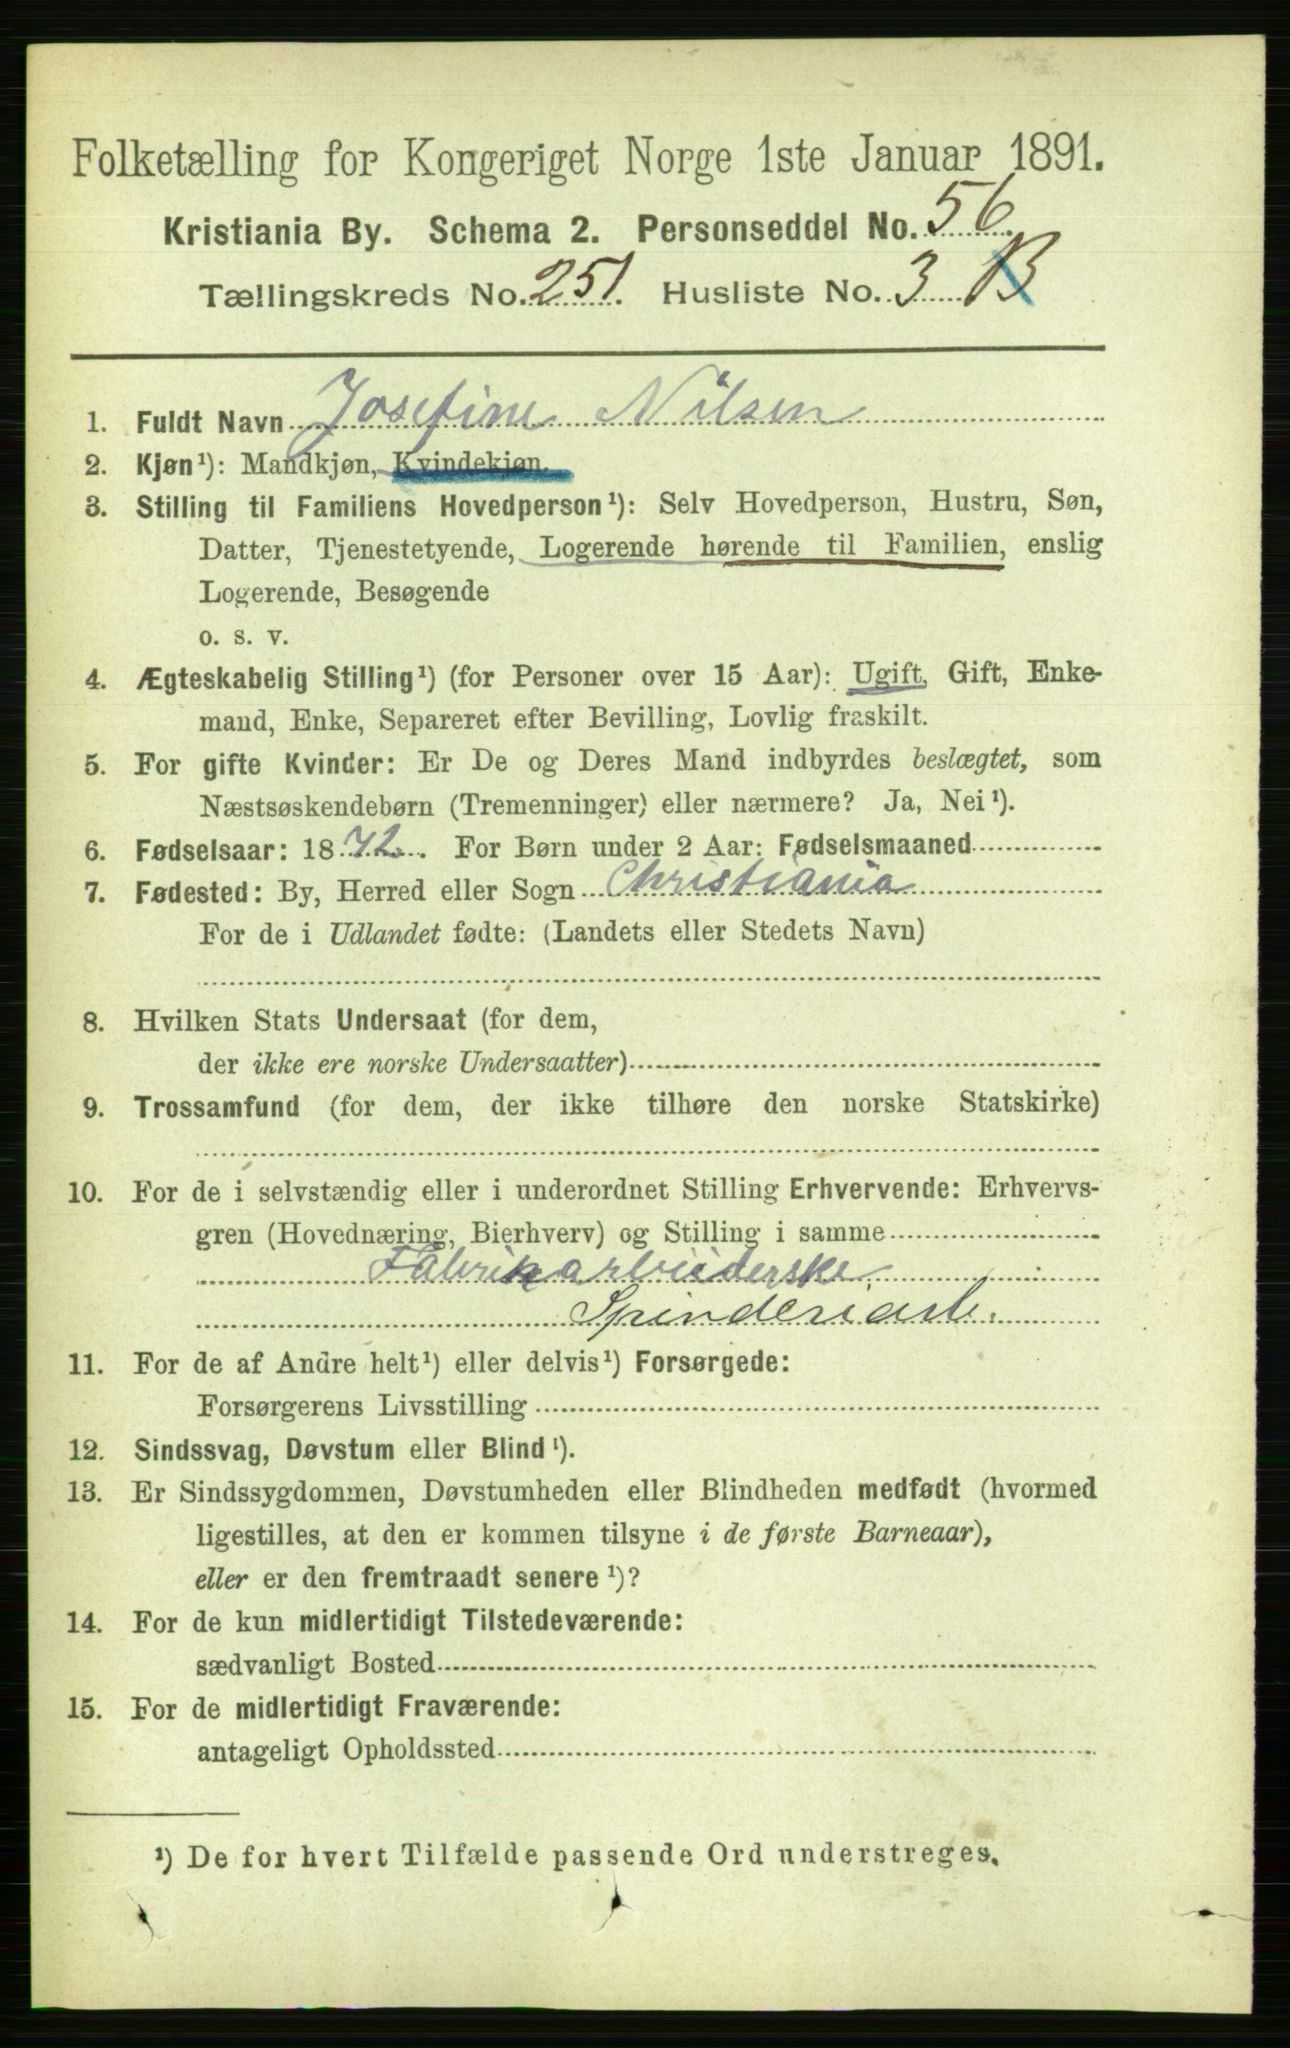 Folketælling for Kongeriget Norge 1ste Januar 1891.
Kristiania By. Schema 2. Personseddel No. 56.
Tællingskreds No. 251. Husliste No. 3 B
1. Fuldt Navn Josefine Nilsen
2. Kjøn¹): Mandkjøn, Kvindekjøn.
3. Stilling til Familiens Hovedperson¹): Selv Hovedperson, Hustru, Søn,
Datter, Tjenestetyende, Logerende hørende til Familien, enslig
Logerende, Besøgende
o. s. v.
4. Ægteskabelig Stilling¹) (for Personer over 15 Aar): Ugift, Gift, Enke-
mand, Enke, Separeret efter Bevilling, Lovlig fraskilt.
5. For gifte Kvinder: Er De og Deres Mand indbyrdes beslægtet, som
Næstsøskendebørn (Tremenninger) eller nærmere? Ja, Nei¹).
6. Fødselsaar: 1872. For Børn under 2 Aar: Fødselsmaaned
7. Fødested: By, Herred eller Sogn Christiania
For de i Udlandet fødte: (Landets eller Stedets Navn)
8. Hvilken Stats Undersaat (for dem,
der ikke ere norske Undersaatter)
9. Trossamfund (for dem, der ikke tilhøre den norske Statskirke)
10. For de i selvstændig eller i underordnet Stilling Erhvervende: Erhvervs-
gren (Hovednæring, Bierhverv) og Stilling i samme
Fabrikarbeiderske
Spinderiarb.
11. For de af Andre helt¹) eller delvis¹) Forsørgede:
Forsørgerens Livsstilling
12. Sindssvag, Døvstum eller Blind¹).
13. Er Sindssygdommen, Døvstumheden eller Blindheden medfødt (hvormed
ligestilles, at den er kommen tilsyne i de første Barneaar),
eller er den fremtraadt senere¹)?
14. For de kun midlertidigt Tilstedeværende:
sædvanligt Bosted
15. For de midlertidigt Fraværende:
antageligt Opholdssted
¹) De for hvert Tilfælde passende Ord understreges.